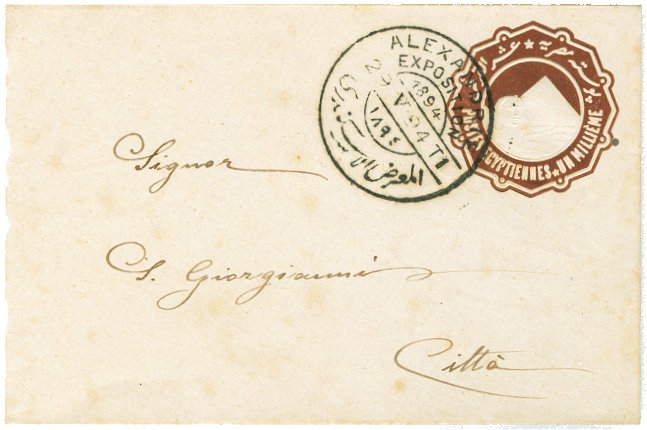 ALEXANDRIE
EXPOSITION
1894
V 94 T1
١٨٩٤
المعرض
POSTES EGYPTIENNES ★ UN MILLIÈME
Signor
S. Giorgianni
Città